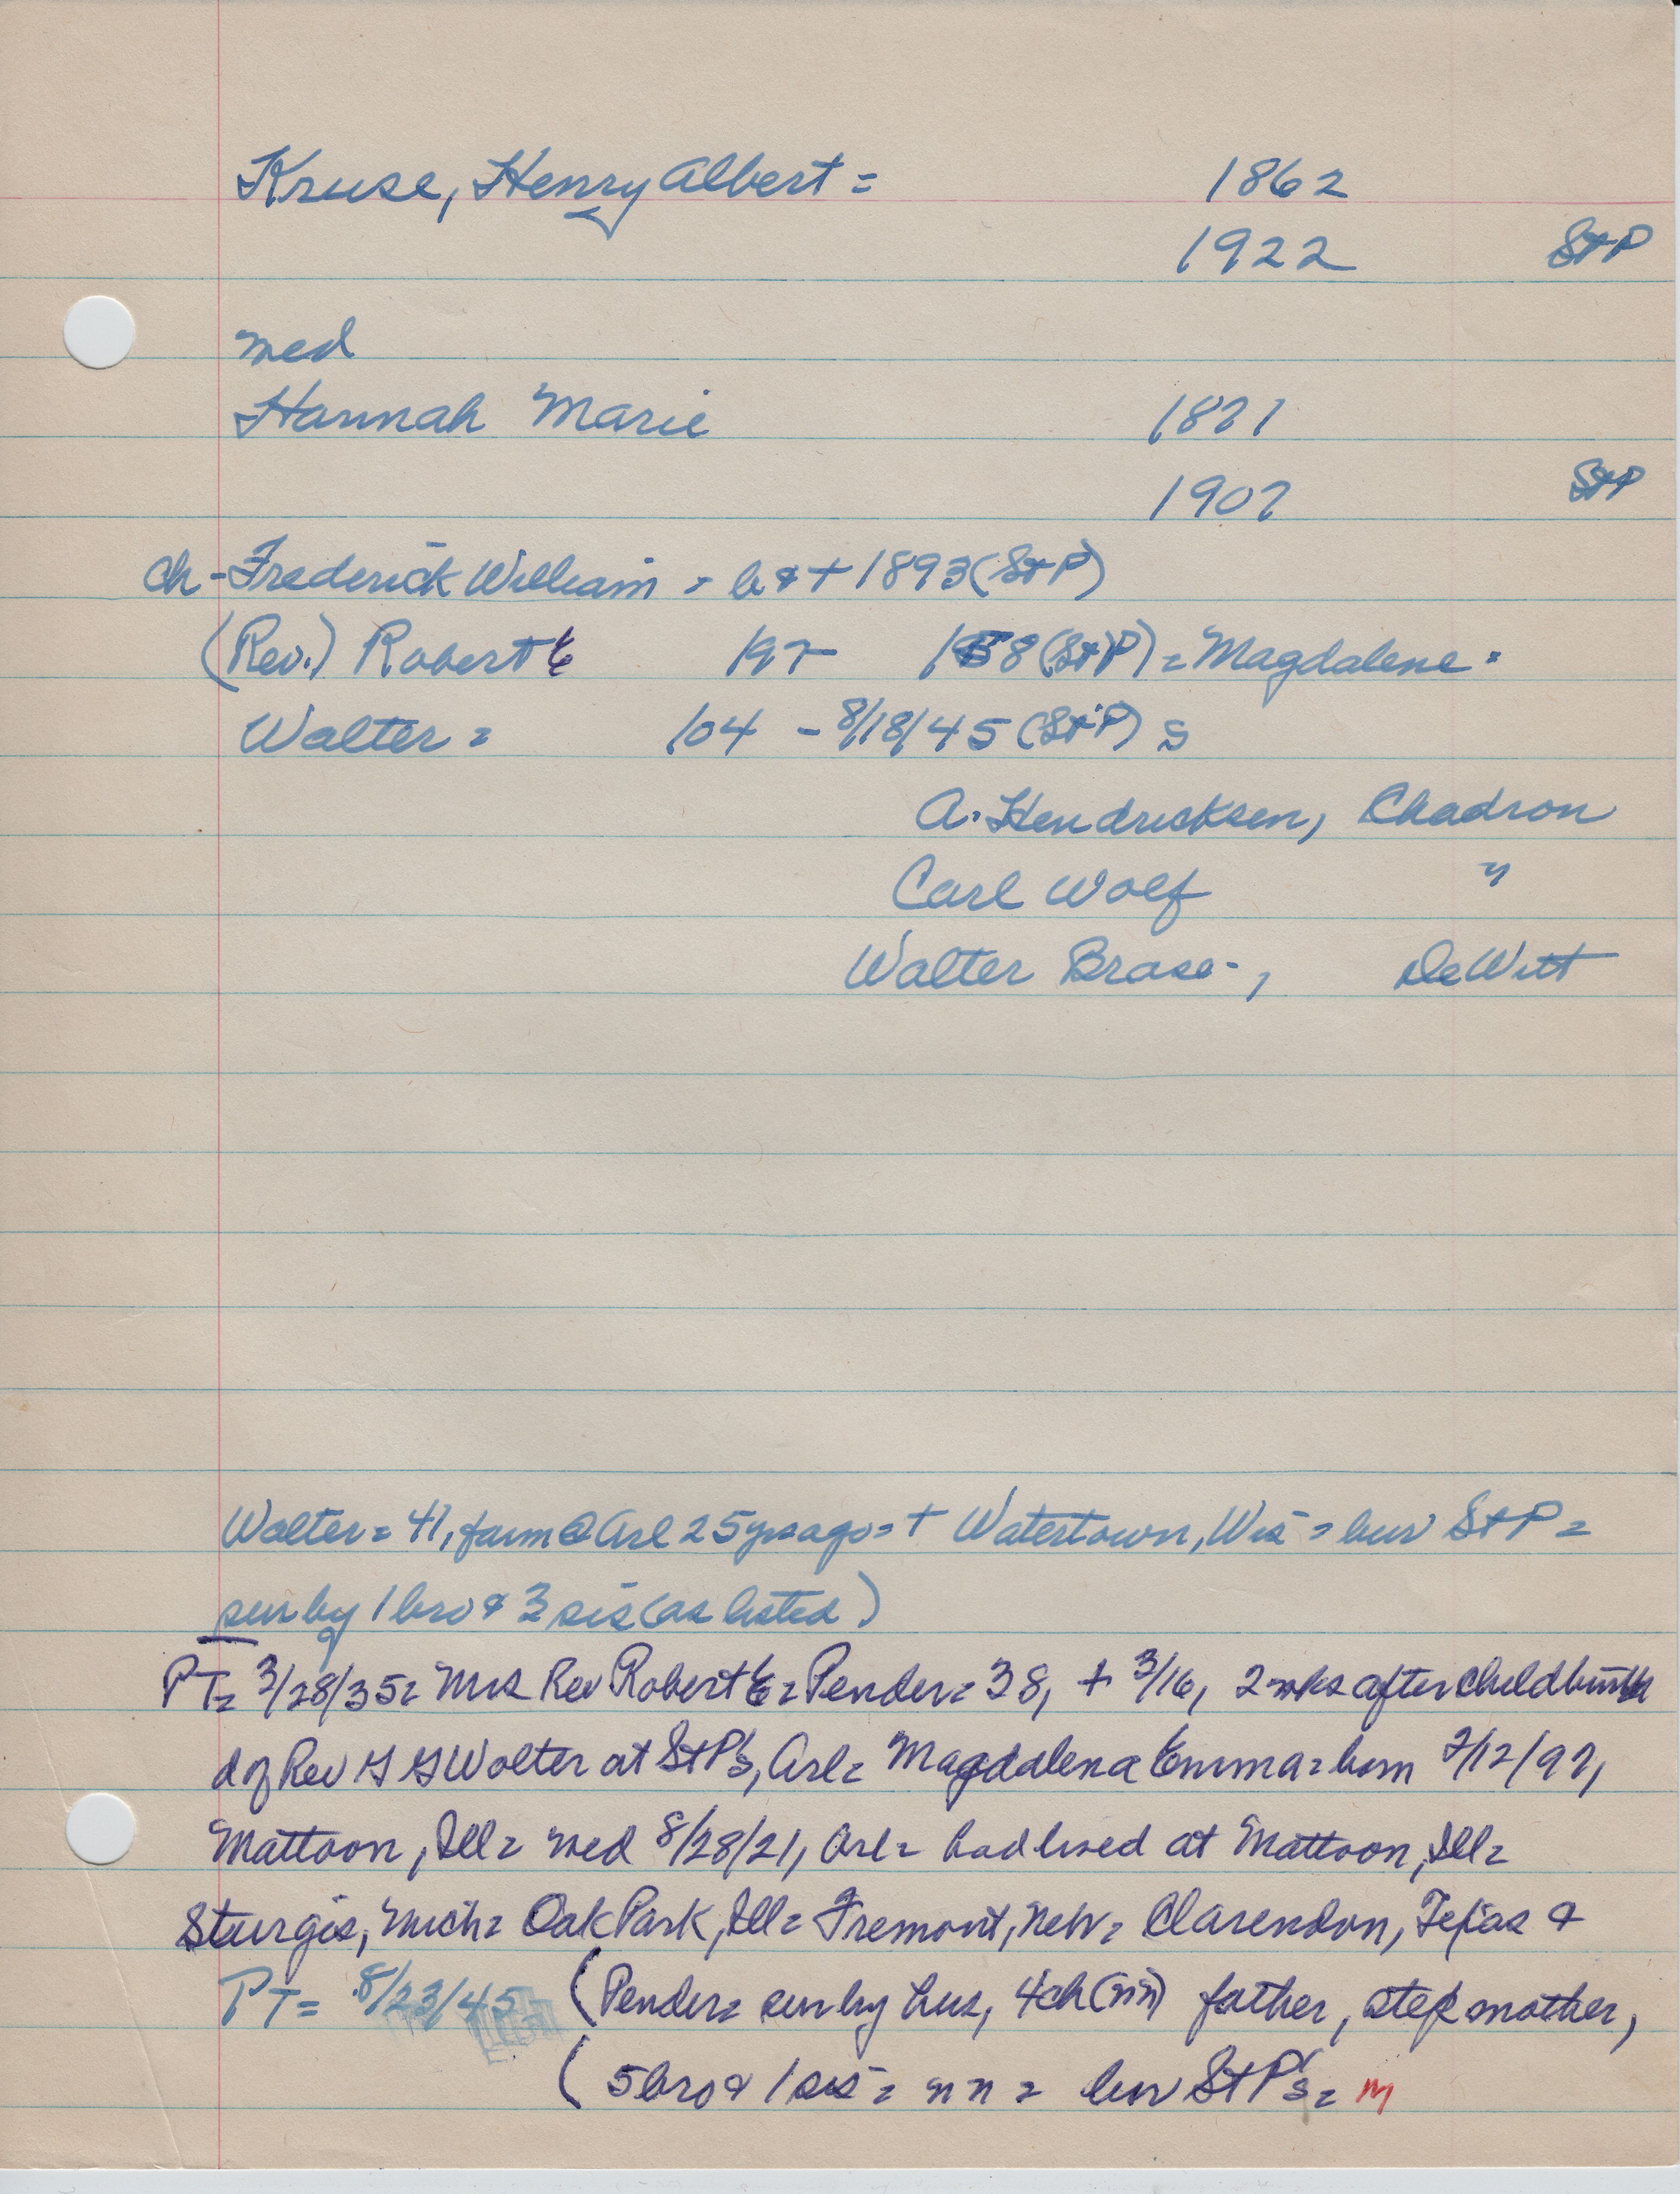 Kruse, Henry Albert = 1862
1922 St P
med
Hannah Marie 1871
1907 St P
ch - Frederick William = b & + 1893 (St P)
(Rev.) Robert E 197- 1958 (St P) = Magdalene =
Walter = 104 - 8/18/45 (St P) s
A. Hendricksen, Chadron
Carl Wolf "
Walter Brase -, DeWitt
Walter = 41, farm @ Arl 25 yrs ago = + Watertown, Wis = bur St P =
sur by 1 bro & 3 sis (as listed)
PT = 3/28/35 = Mrs Rev Robert E = Pender = 38, + 3/16, 2 wks after childbirth
d of Rev G G Wolter at St P's, Arl = Magdalena Emma = born 2/12/97,
Mattoon, Ill = med 8/28/21, Arl = had lived at Mattoon, Ill =
Sturgis, Mich = Oak Park, Ill = Fremont, Neb = Clarendon, Texas &
PT = 8/23/45 (Pender = sur by hus, 4 ch (nn) father, step mother,
(5 bro & 1 sis = nn = bur St P's = m